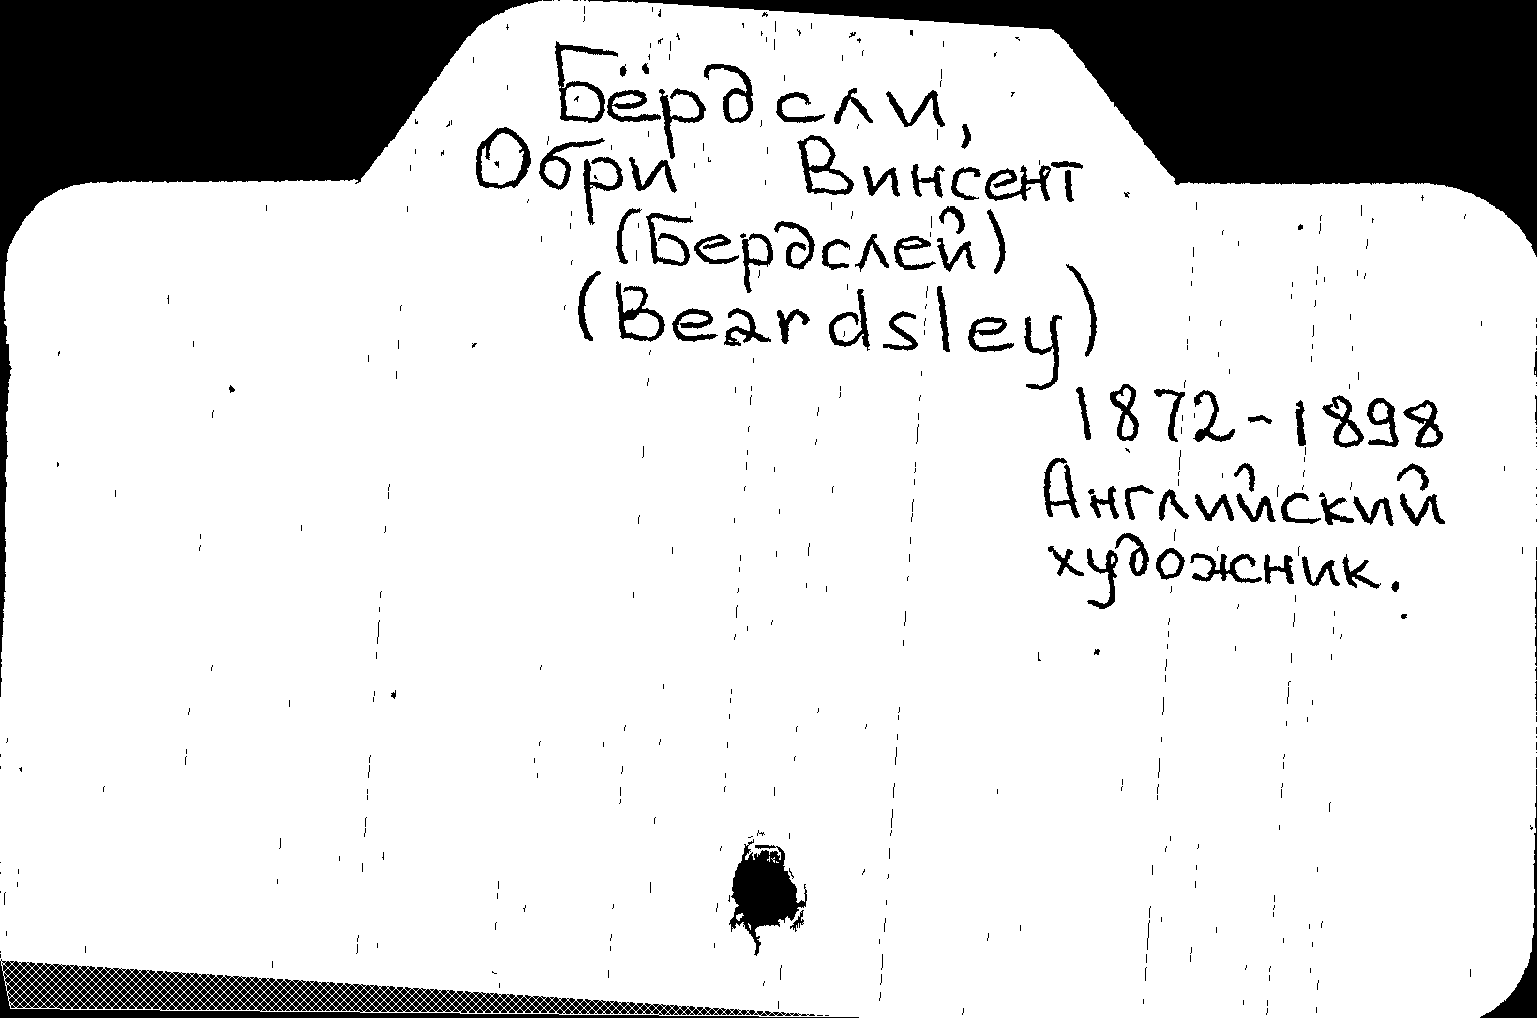 Бёрдсли,
Обри Винсент
(Бердслей)
(Beardsley)
1872-1898
Английский
художник.